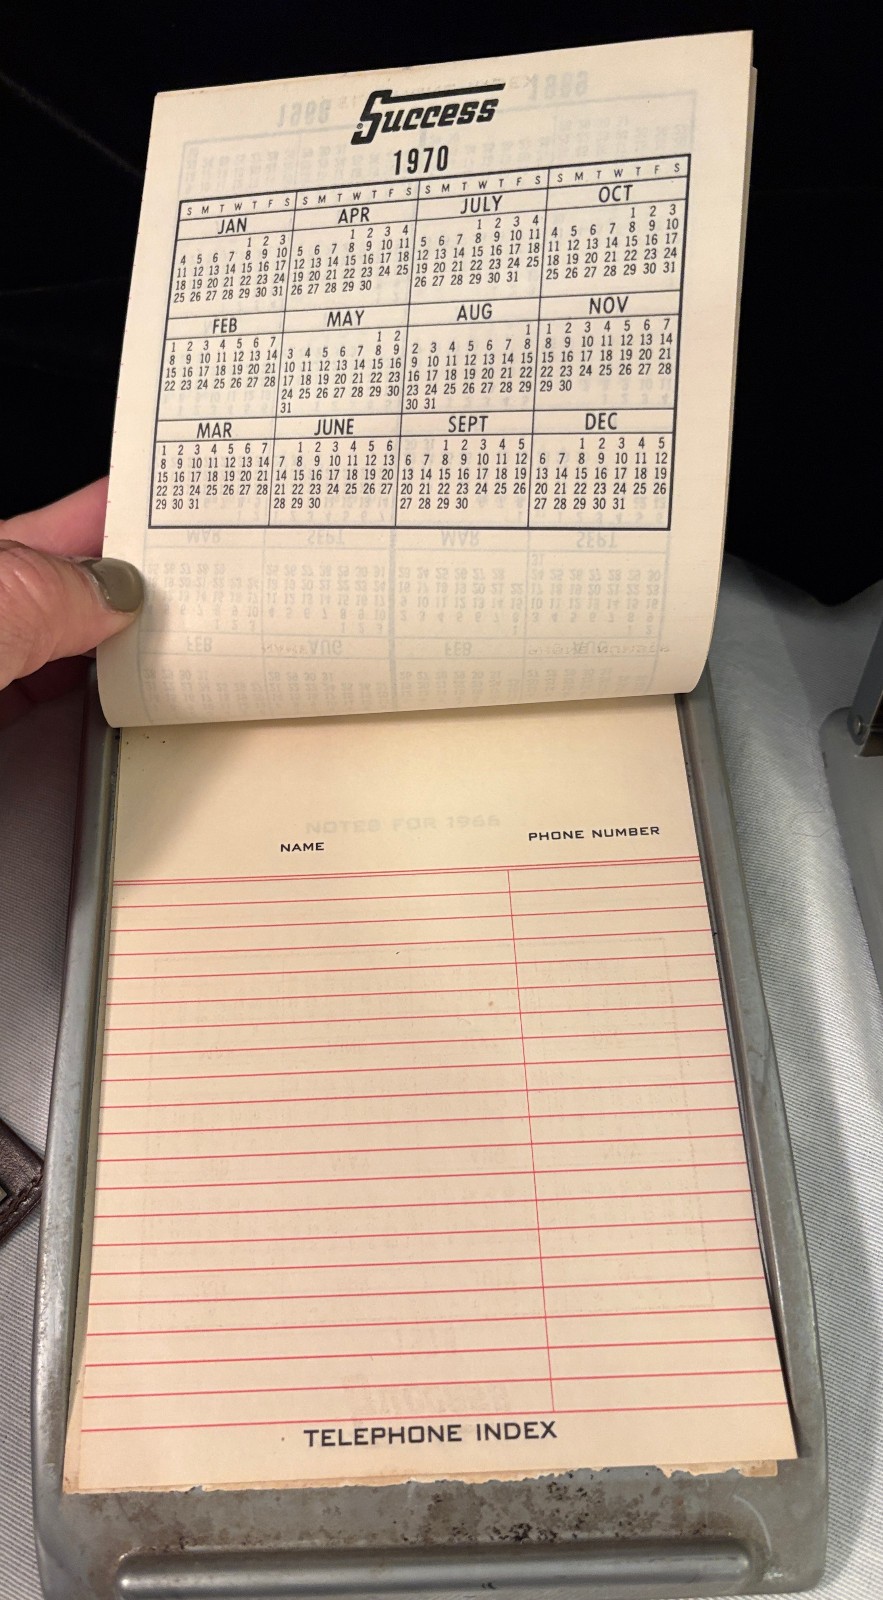 Success
1970
S M T W T F S S M T W T F S S M T W T F S S M T W T F S
JAN
1 2 3
4 5 6 7 8 9 10
11 12 13 14 15 16 17
18 19 20 21 22 23 24
25 26 27 28 29 30 31
APR
1 2 3 4
5 6 7 8 9 10 11
12 13 14 15 16 17 18
19 20 21 22 23 24 25
26 27 28 29 30
JULY
1 2 3 4
5 6 7 8 9 10 11
12 13 14 15 16 17 18
19 20 21 22 23 24 25
26 27 28 29 30 31
OCT
1 2 3
4 5 6 7 8 9 10
11 12 13 14 15 16 17
18 19 20 21 22 23 24
25 26 27 28 29 30 31
FEB
1 2 3 4 5 6 7
8 9 10 11 12 13 14
15 16 17 18 19 20 21
22 23 24 25 26 27 28
MAY
1 2
3 4 5 6 7 8 9
10 11 12 13 14 15 16
17 18 19 20 21 22 23
24 25 26 27 28 29 30
31
AUG
1
2 3 4 5 6 7 8
9 10 11 12 13 14 15
16 17 18 19 20 21 22
23 24 25 26 27 28 29
30 31
NOV
1 2 3 4 5 6 7
8 9 10 11 12 13 14
15 16 17 18 19 20 21
22 23 24 25 26 27 28
29 30
MAR
1 2 3 4 5 6 7
8 9 10 11 12 13 14
15 16 17 18 19 20 21
22 23 24 25 26 27 28
29 30 31
JUNE
1 2 3 4 5 6
7 8 9 10 11 12 13
14 15 16 17 18 19 20
21 22 23 24 25 26 27
28 29 30
SEPT
1 2 3 4 5
6 7 8 9 10 11 12
13 14 15 16 17 18 19
20 21 22 23 24 25 26
27 28 29 30
DEC
1 2 3 4 5
6 7 8 9 10 11 12
13 14 15 16 17 18 19
20 21 22 23 24 25 26
27 28 29 30 31
NOTES FOR 1966
NAME PHONE NUMBER
TELEPHONE INDEX